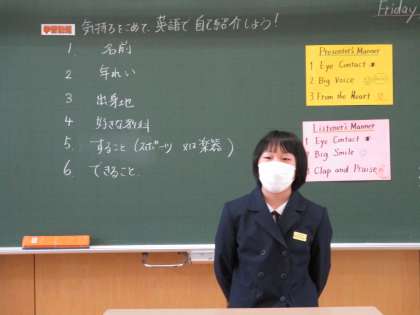 学習課題 気持ちをこめて、英語で自己紹介しよう！
Friday
1. 名前
2 年れい
3 出身地
4 好きな教科
5. すること（スポーツ 又は楽器）
6. できること
Presenter's Manner
1 Eye Contact
2 Big Voice
3 From the Heart
Listener's Manner
1 Eye Contact
2 Big Smile
3 Clap and Praise